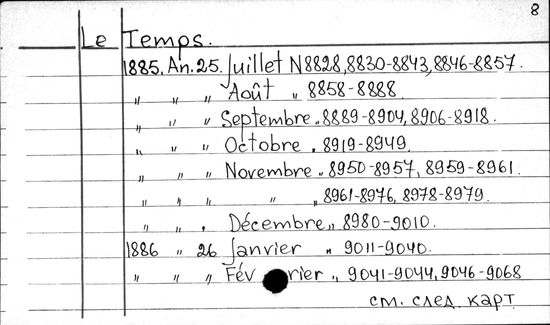 8
Le Temps.
1885. An. 25. Juillet N8828, 8830-8843, 8846-8857.
„ „ „ Août „ 8858-8888
„ „ „ Septembre „ 8889-8904, 8906-8918.
„ „ „ Octobre „ 8919-8949.
„ „ „ Novembre „ 8950-8957, 8959-8961.
„ „ „ „ „ 8961-8976, 8978-8979.
„ „ „ Décembre „ 8980-9010.
1886 „ 26 Janvier „ 9011-9040.
„ „ „ Février „ 9041-9044, 9046-9068
см. след. карт